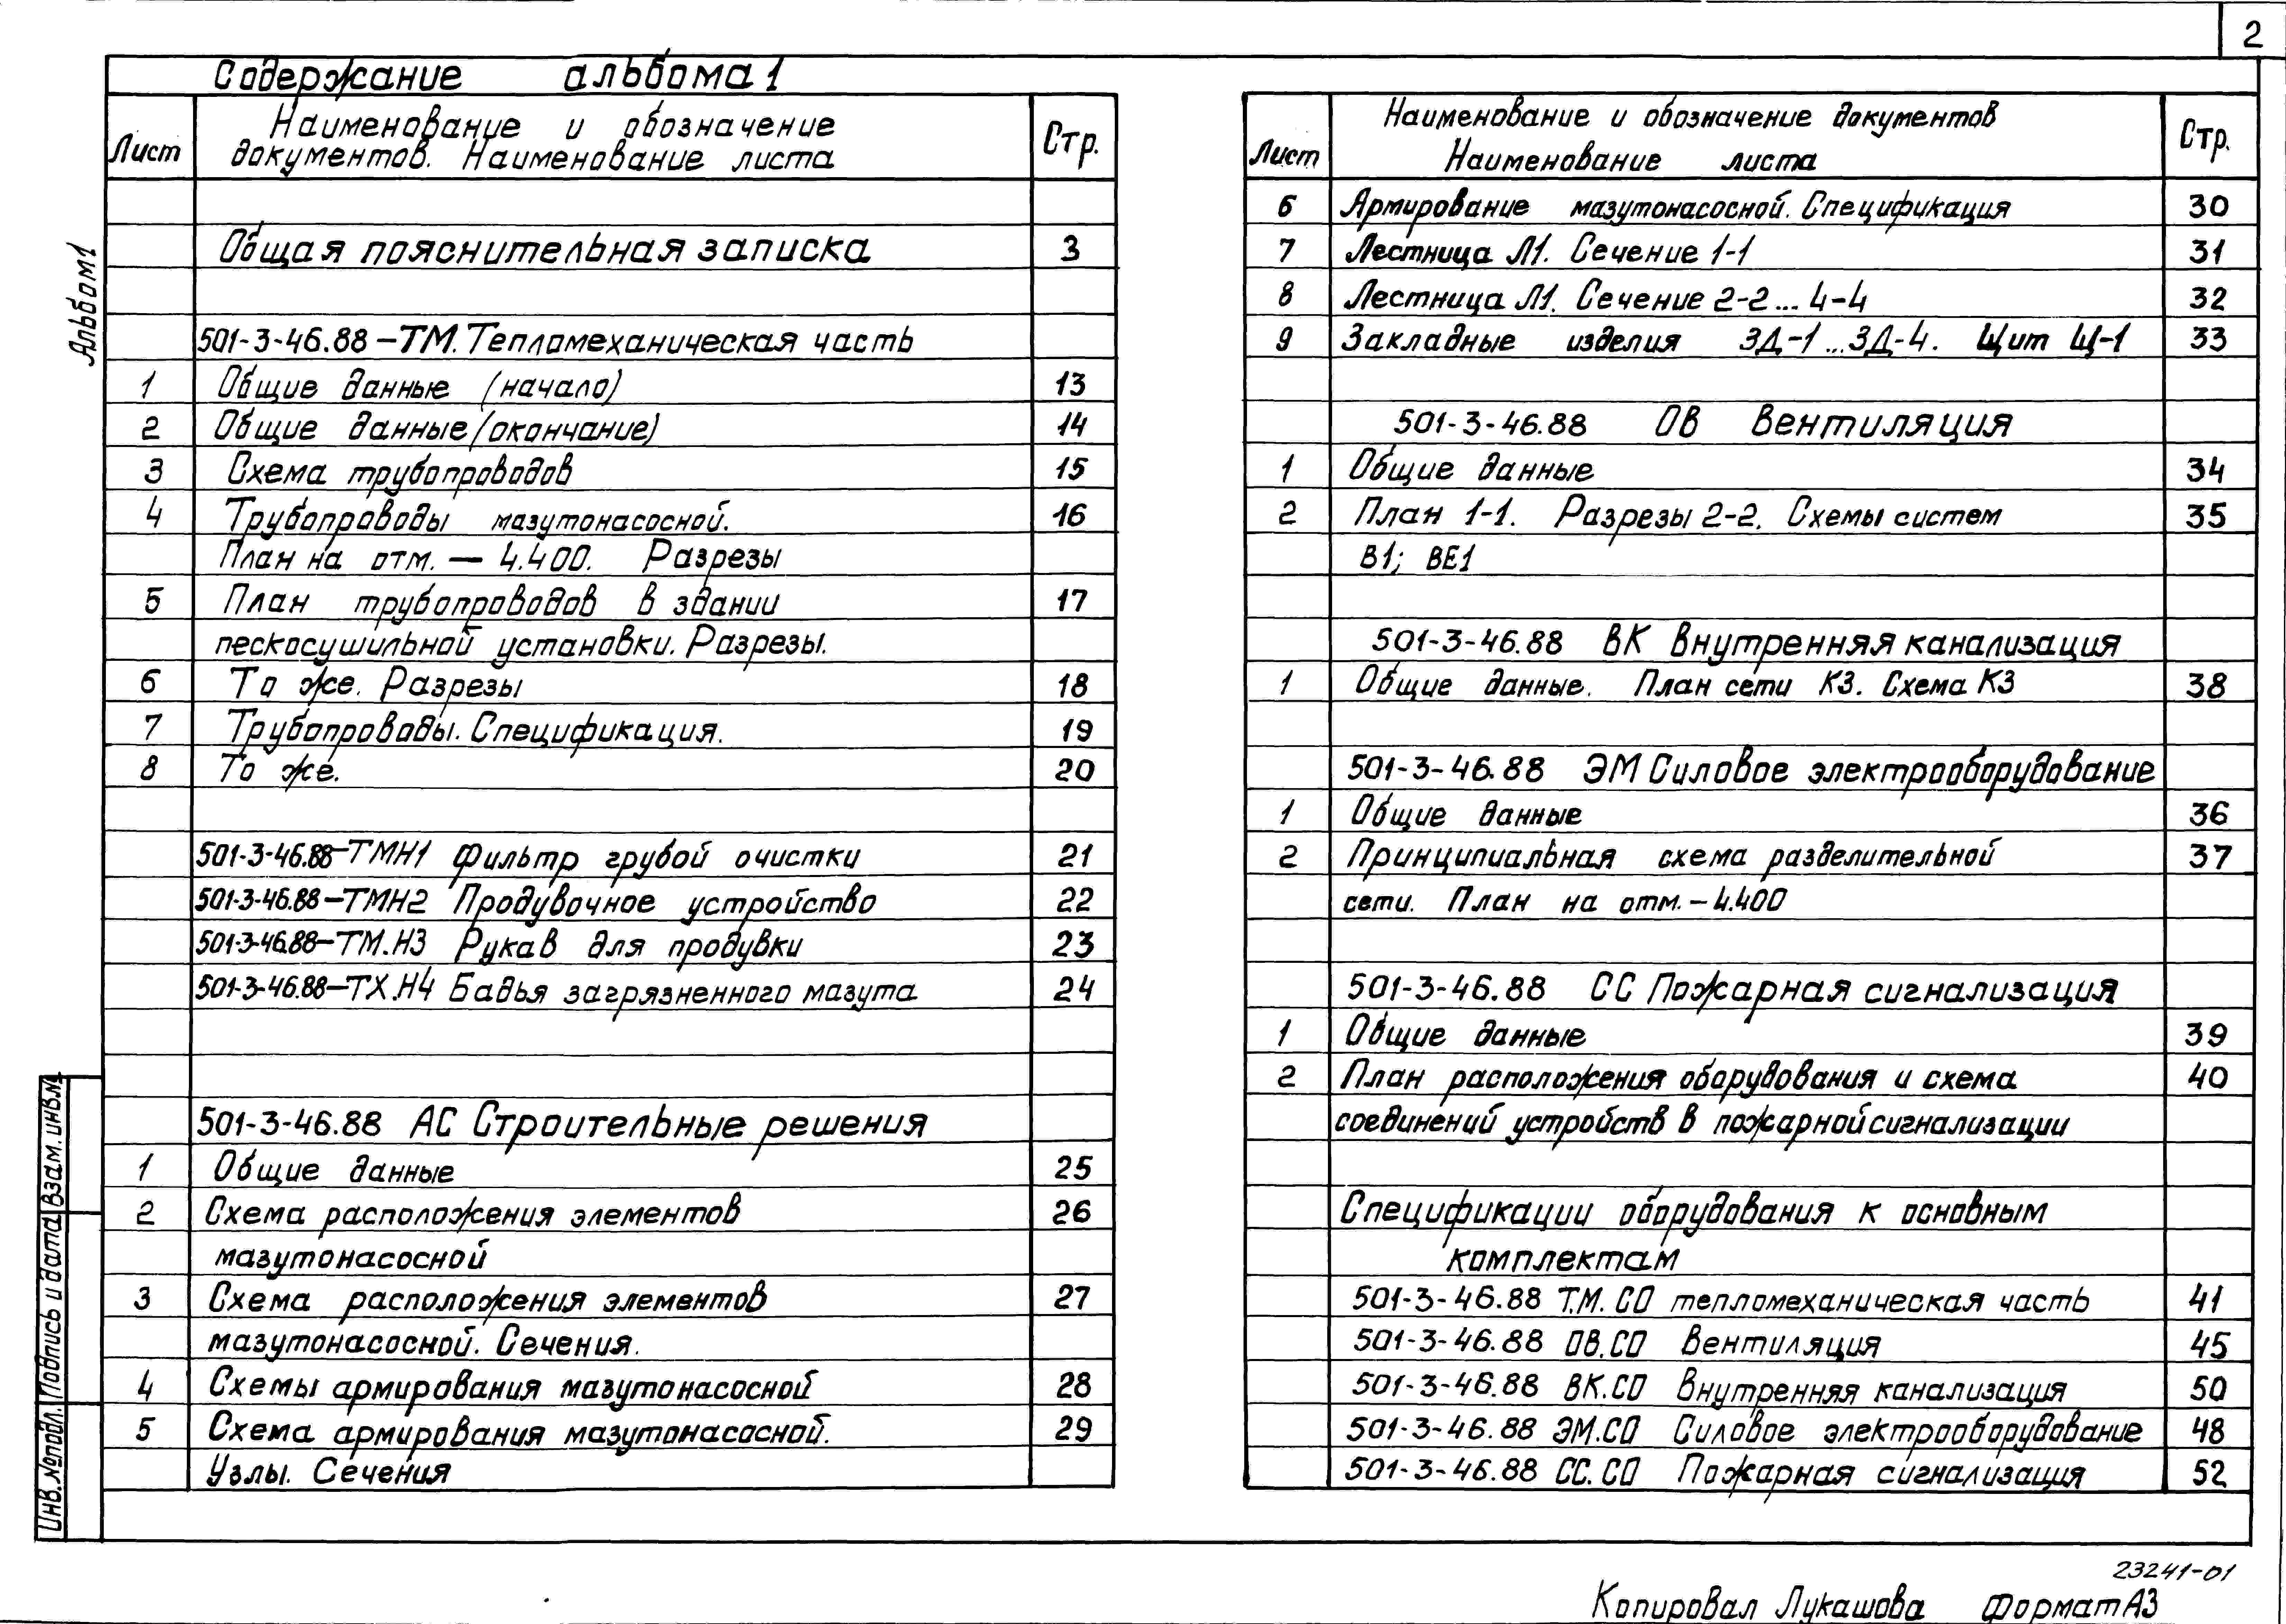 2
Содержание альбома 1
Лист
Наименование и обозначение
документов. Наименование листа
Стр.
Общая пояснительная записка 3
501-3-46.88-ТМ. Тепломеханическая часть
1 Общие данные (начало) 13
2 Общие данные (окончание) 14
3 Схема трубопроводов 15
4 Трубопроводы мазутонасосной. 16
План на отм. — 4.400. Разрезы
5 План трубопроводов в здании 17
пескосушильной установки. Разрезы.
6 То же. Разрезы 18
7 Трубопроводы. Спецификация. 19
8 То же. 20
501-3-46.88-ТМН1 Фильтр грубой очистки 21
501-3-46.88-ТМН2 Продувочное устройство 22
501-3-46.88-ТМ.Н3 Рукав для продувки 23
501-3-46.88-ТХ.Н4 Бадья загрязненного мазута 24
501-3-46.88 АС Строительные решения
1 Общие данные 25
2 Схема расположения элементов 26
мазутонасосной
3 Схема расположения элементов 27
мазутонасосной. Сечения.
4 Схемы армирования мазутонасосной 28
5 Схема армирования мазутонасосной. 29
Узлы. Сечения
Лист
Наименование и обозначение документов
Наименование листа
Стр.
6 Армирование мазутонасосной. Спецификация 30
7 Лестница Л1. Сечение 1-1 31
8 Лестница Л1. Сечение 2-2... 4-4 32
9 Закладные изделия ЗД-1...ЗД-4. Щит Щ-1 33
501-3-46.88 ОВ Вентиляция
1 Общие данные 34
2 План 1-1. Разрезы 2-2. Схемы систем 35
В1; ВЕ1
501-3-46.88 ВК Внутренняя канализация
1 Общие данные. План сети К3. Схема К3 38
501-3-46.88 ЭМ Силовое электрооборудование
1 Общие данные 36
2 Принципиальная схема разделительной 37
сети. План на отм. - 4.400
501-3-46.88 СС Пожарная сигнализация
1 Общие данные 39
2 План расположения оборудования и схема 40
соединений устройств в пожарной сигнализации
Спецификации оборудования к основным
комплектам
501-3-46.88 Т.М.СО тепломеханическая часть 41
501-3-46.88 ОВ.СО Вентиляция 45
501-3-46.88 ВК.СО Внутренняя канализация 50
501-3-46.88 ЭМ.СО Силовое электрооборудование 48
501-3-46.88 СС.СО Пожарная сигнализация 52
Альбом 1
Инв.№подл. Подпись и дата Взам.инв.№
23241-01
Копировал Лукашова Формат А3